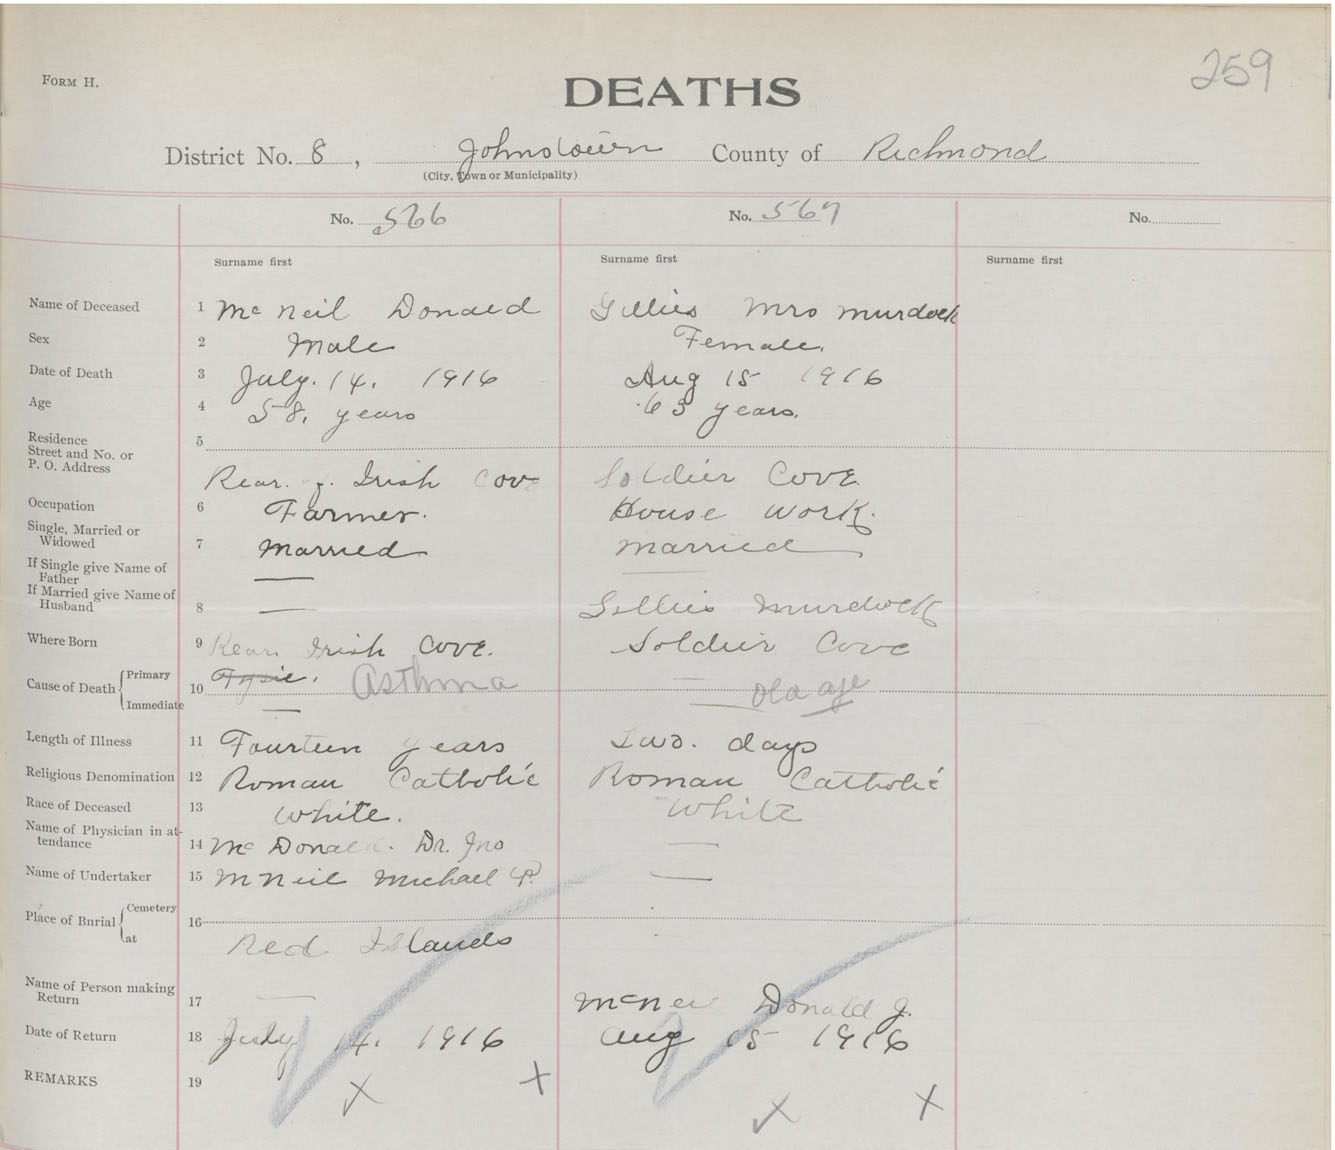 FORM H.
DEATHS
259
District No. 8, Johnstown County of Richmond
(City, Town or Municipality)
No. 566 No. 567 No.
Surname first Surname first Surname first
Name of Deceased 1 Mc Neil Donald Gillies Mrs Murdock
Sex 2 Male Female.
Date of Death 3 July. 14. 1916 Aug 15 1916
Age 4 58, years 63 years.
Residence
Street and No. or
P. O. Address 5
Rear. of Irish Cove Soldier Cove.
Occupation 6 Farmer. House work.
Single, Married or
Widowed 7 Married Married
If Single give Name of
Father —
If Married give Name of
Husband 8 — Gillies Murdock
Where Born 9 Rear Irish Cove. Soldier Cove
Cause of Death Primary 10 Asthma old age
Immediate —
Length of Illness 11 Fourteen years Two. days
Religious Denomination 12 Roman Catholic Roman Catholic
Race of Deceased 13 White. White
Name of Physician in at-
tendance 14 Mc Donald. Dr. Jno —
Name of Undertaker 15 McNeil Michael P. —
Place of Burial Cemetery 16
at Red Islands
Name of Person making
Return 17 — McNeil Donald J.
Date of Return 18 July 14. 1916 Aug 15 1916
REMARKS 19 x x x x